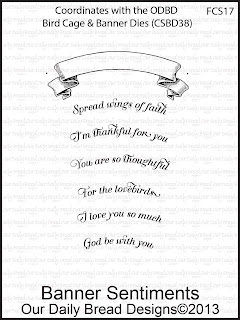 Coordinates with the ODBD
FCS17
Bird Cage & Banner Dies (CSBD38)
Spread wings of faith
I'm thankful for you
You are so thoughtful
For the lovebirds
I love you so much
God be with you
Banner Sentiments
Our Daily Bread Designs©2013